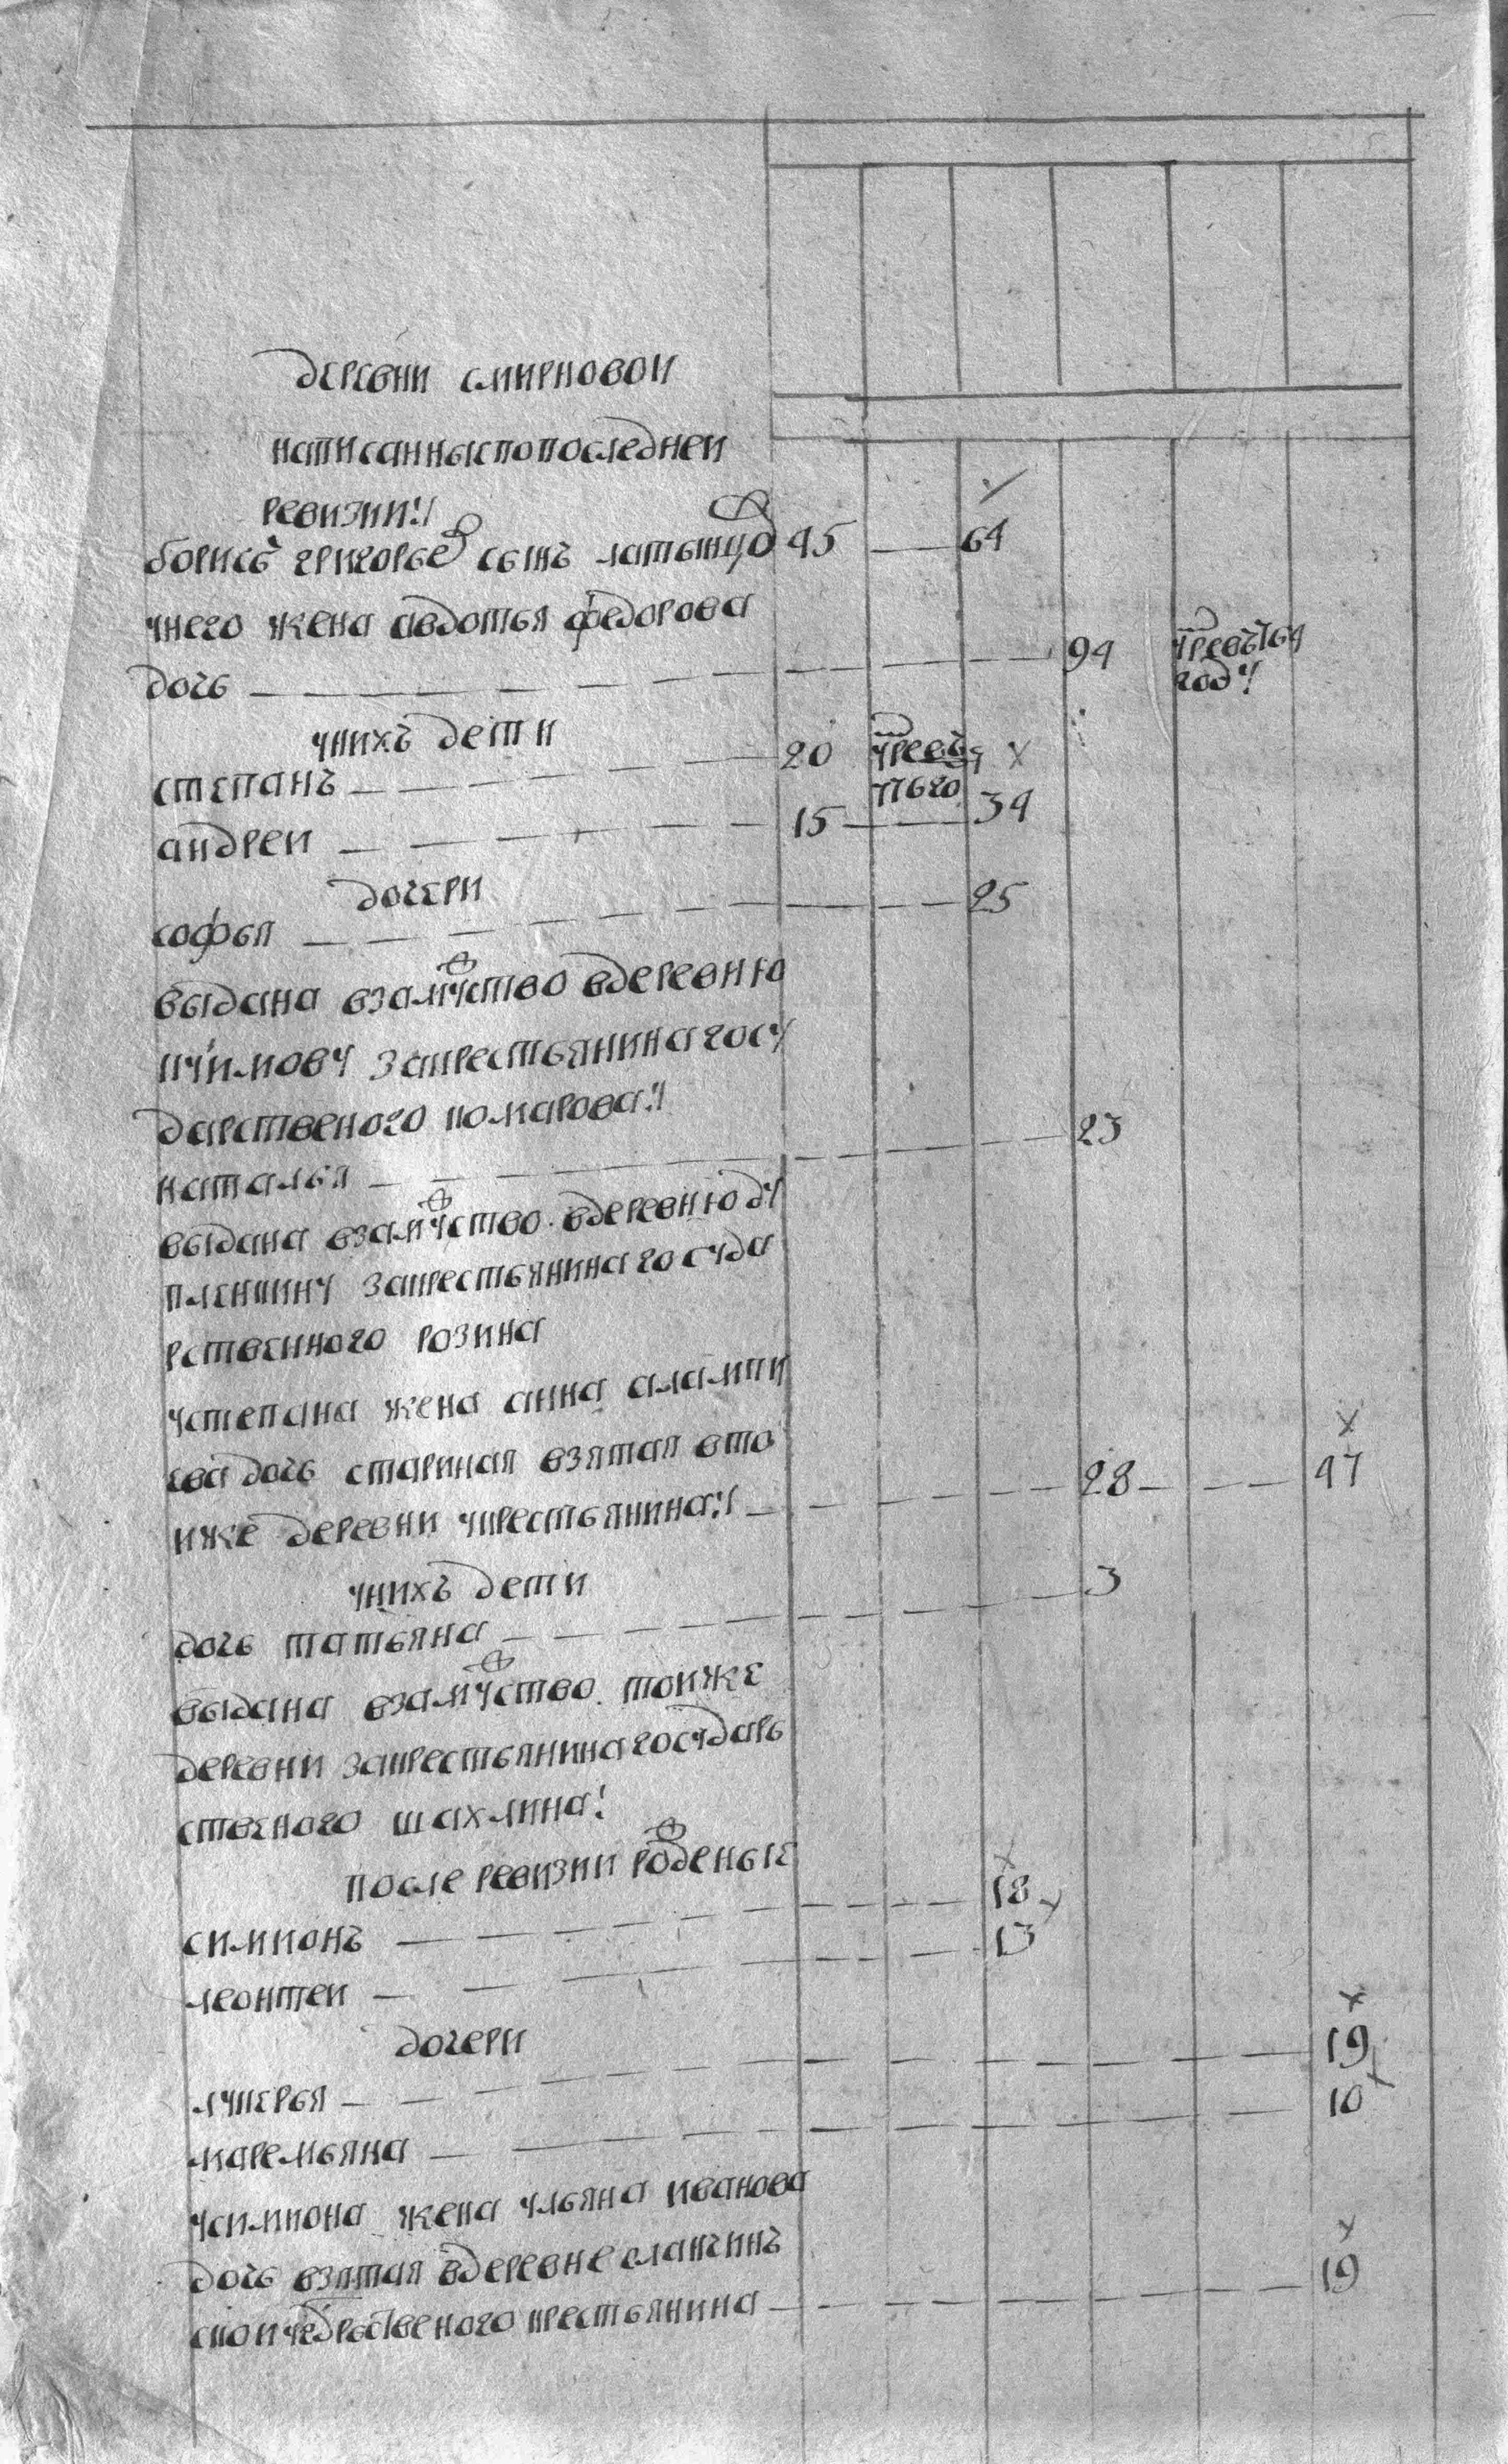 деревни смирновои
написанныепопоследнеи
ревизии
борисъ григорьев сынъ латынцо 45 — 64
унего жена авдотья федорова
дочь — 44 умрев 764
году
унихъ дети
степанъ — 20 умревъ
1762 го
андреи — 15 — 34
дочери
софья — 25
выдана взамуство вдеревню
кчимову закрестьянина госу
дарственого комарова
наталья — 23
выдана взамуство вдеревнюду
пленкину закрестьянина госуда
рственного розина
устепана жена анна алампи
ева дочь стариная взятая вто
иже деревниукрестьянина — 28 — 47
унихъ дети
дочь татьяна — 3
выдана взамуство тоиже
деревни закрестьянина государь
ственого шахлина
после ревизии роденые
симионъ — 18
леонтеи — 13
дочери
лукерья — 19
маремьяна — 10
усимиона жена ульяна иванова
дочь взятая вдеревне
крестьянина — 19